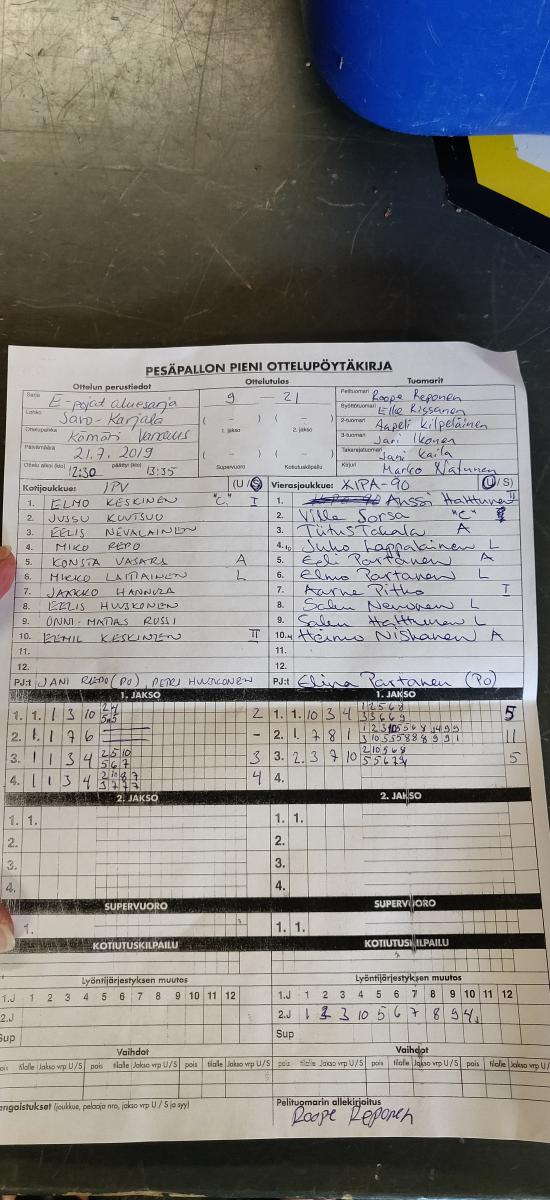 PESÄPALLON PIENI OTTELUPÖYTÄKIRJA
Ottelun perustiedot
Ottelutulos
Tuomarit
Sarja E-pojat aluesarja
Lohko Savo-Karjala
Ottelupaikka Kämäri Varkaus
Päivämäärä 21.7.2019
Ottelu alkoi (klo) 12:30 päättyi (klo) 13:35
9 — 21
( – ) ( – )
1. jakso 2. jakso
( – ) ( – )
Supervuoro Kotiutuskilpailu
Pelituomari Roope Reponen
Syöttötuomari Elle Rissanen
2-tuomari Aapeli Kilpeläinen
3-tuomari Jari Ikonen
Takarajatuomari Jani Kaila
Kirjuri Marko
Kotijoukkue: IPV (U/S)
1. ELMO KESKINEN "C" I
2. JUSSU KUUTSUO
3. EELIS NEVALAINEN
4. MIKO REPO
5. KONSTA VASARA A
6. MIKKO LAITIAINEN L
7. JAAKKO HANNULA
8. EELIS HUUSKONEN
9. ONNI-MATIAS RUSSI
10. EEMIL KESKINEN II
11.
12.
PJ:t JANI REPO (PO), PETRI HUUSKONEN
Vierasjoukkue: KIPA-90 (U/S)
1. Anssi Halttunen II
2. Ville Sorsa "C"
3. Titus Tokola A
4. Juho Lappalainen L
5. Eeli Partanen A
6. Elmo Partanen L
7. Aarne Pitko I
8. Salen Nevonen L
9. Salen Halttunen L
10. Haimo Niskanen A
11.
12.
PJ:t Elina Partanen (PO)
1. JAKSO
1. 1. 1 3 10 2
2. 1. 1 7 6 –
3. 1 1 3 4 2 5 10 5 6 7 3
4. 1 1 3 4 4
1. JAKSO
1. 1. 10 3 4 1 2 5 6 8 3 3 6 6 9 5
2. 1. 7 8 1 11
3. 2. 3 7 10 2 10 5 6 8 5
4.
2. JAKSO
1. 1.
2.
3.
4.
2. JAKSO
1. 1.
2.
3.
4.
SUPERVUORO
1.
SUPERVUORO
1. 1.
KOTIUTUSKILPAILU
KOTIUTUSKILPAILU
Lyöntijärjestyksen muutos
1.J 1 2 3 4 5 6 7 8 9 10 11 12
2.J
Sup
Lyöntijärjestyksen muutos
1.J 1 2 3 4 5 6 7 8 9 10 11 12
2.J 1 2 3 10 5 6 7 8 9 4
Sup
Vaihdot
pois tilalle Jakso vrp U/S pois tilalle Jakso vrp U/S
Vaihdot
pois tilalle Jakso vrp U/S pois tilalle Jakso vrp U/S
angaistukset (joukkue, pelaaja nro, jakso vrp U / S ja syy)
Pelituomarin allekirjoitus
Roope Reponen